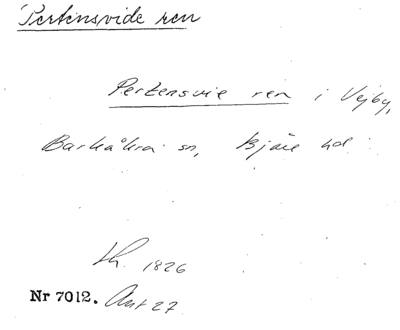 Pertensvide ren
Pertensvie ren i Vejby,
Barkåkra sn, Bjäre hd.
Lh. 1826
Nr 7012. Ant 27